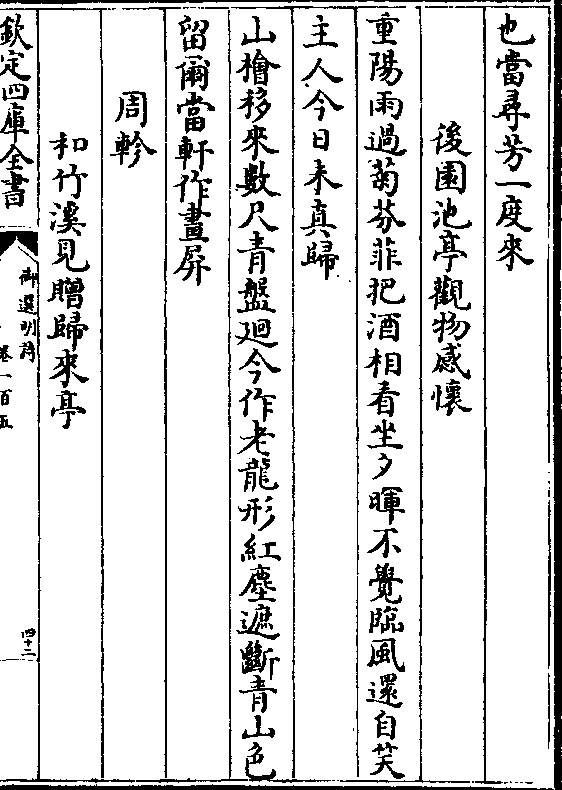 也當尋芳一度來
後園池亭觀物感懷
重陽雨過菊芬菲把酒相看坐夕暉不覺臨風還自笑
主人今日未真歸
山檜移來數尺青盤廻今作老龍形紅塵遮斷青山色
留爾當軒作畫屏
周軫
和竹溪見贈歸來亭
欽定四庫全書
御選明詩
卷一百五
四十二